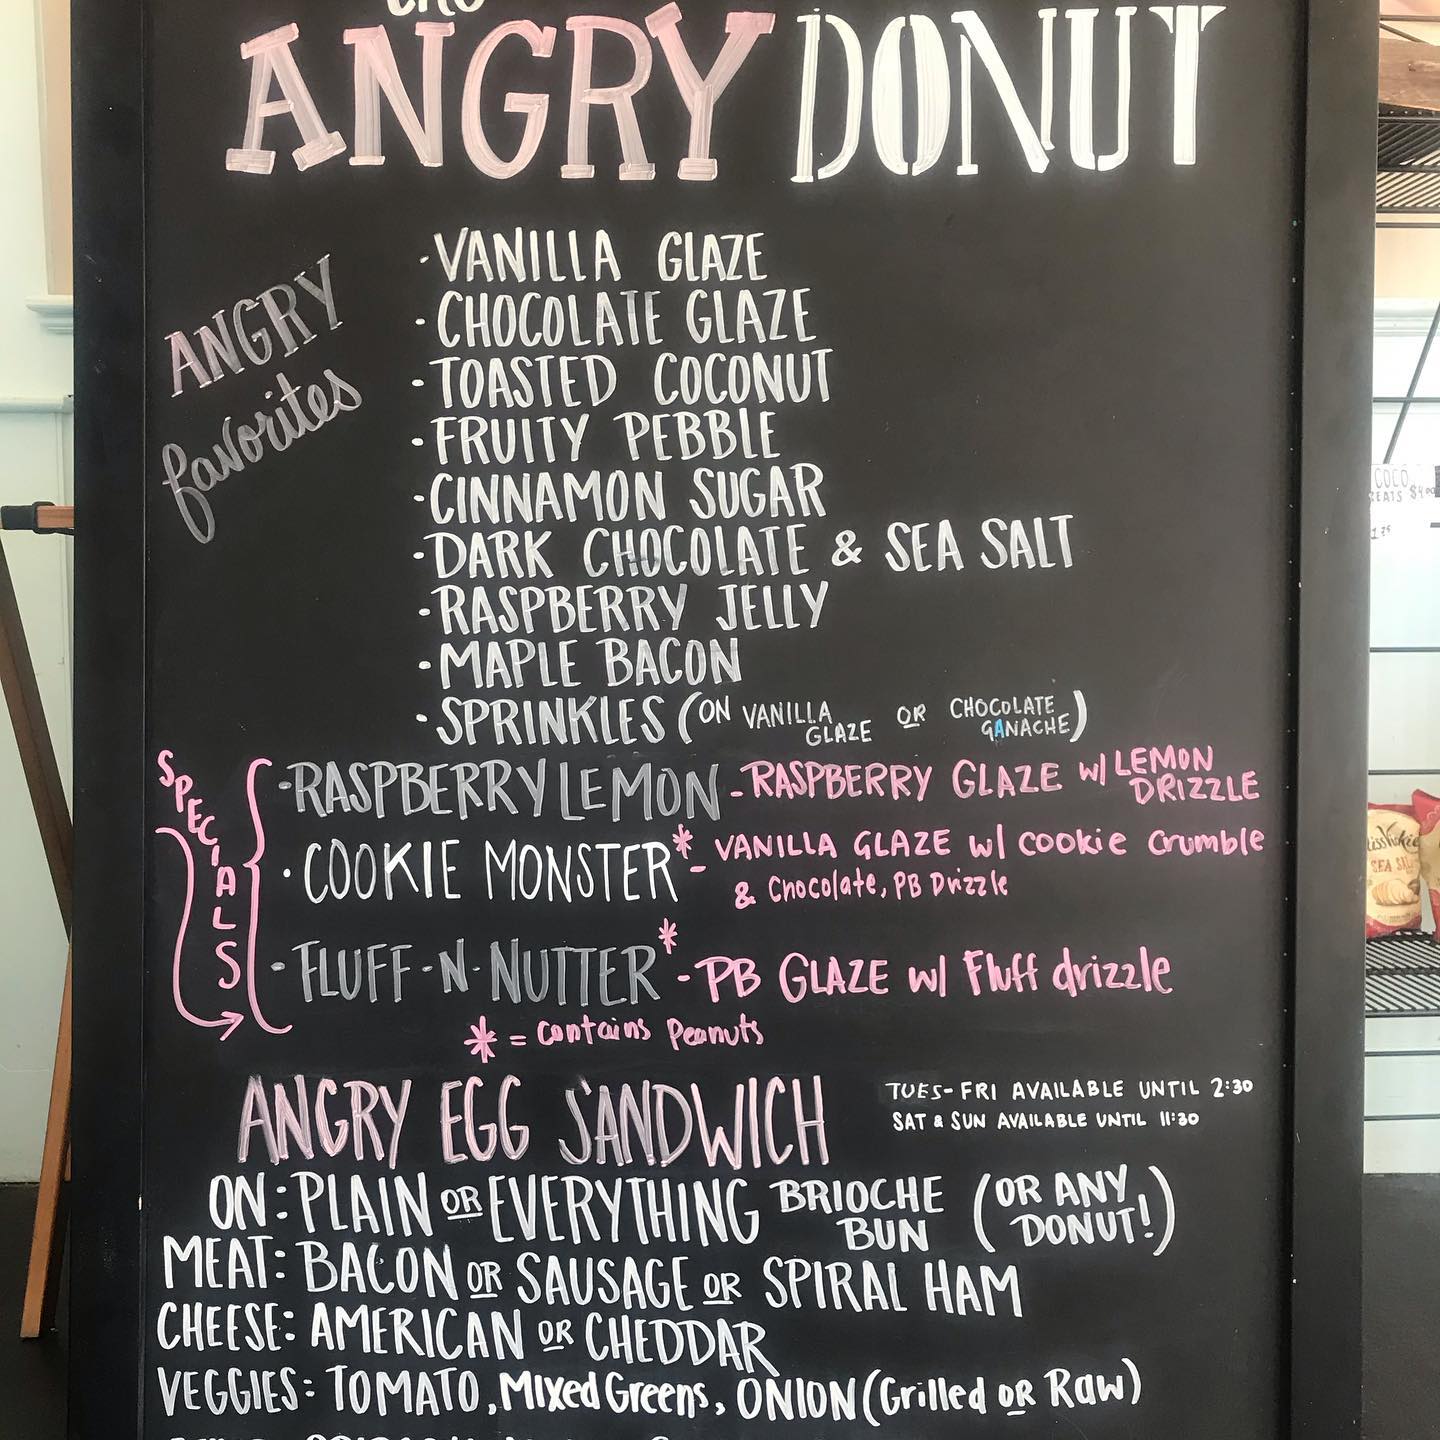 the
ANGRY DONUT
ANGRY
favorites
·VANILLA GLAZE
·CHOCOLATE GLAZE
·TOASTED COCONUT
·FRUITY PEBBLE
·CINNAMON SUGAR
·DARK CHOCOLATE & SEA SALT
·RASPBERRY JELLY
·MAPLE BACON
·SPRINKLES (ON VANILLA GLAZE OR CHOCOLATE GANACHE)
SPECIALS
·RASPBERRY LEMON - RASPBERRY GLAZE w/ LEMON DRIZZLE
·COOKIE MONSTER* - VANILLA GLAZE w/ cookie crumble
& Chocolate, PB Drizzle
·FLUFF-N-NUTTER* - PB GLAZE w/ Fluff drizzle
* = contains Peanuts
ANGRY EGG SANDWICH
TUES-FRI AVAILABLE UNTIL 2:30
SAT & SUN AVAILABLE UNTIL 11:30
ON: PLAIN OR EVERYTHING BRIOCHE BUN (OR ANY DONUT!)
MEAT: BACON OR SAUSAGE OR SPIRAL HAM
CHEESE: AMERICAN OR CHEDDAR
VEGGIES: TOMATO, Mixed Greens, ONION (Grilled OR Raw)
COCO
SEA SALT